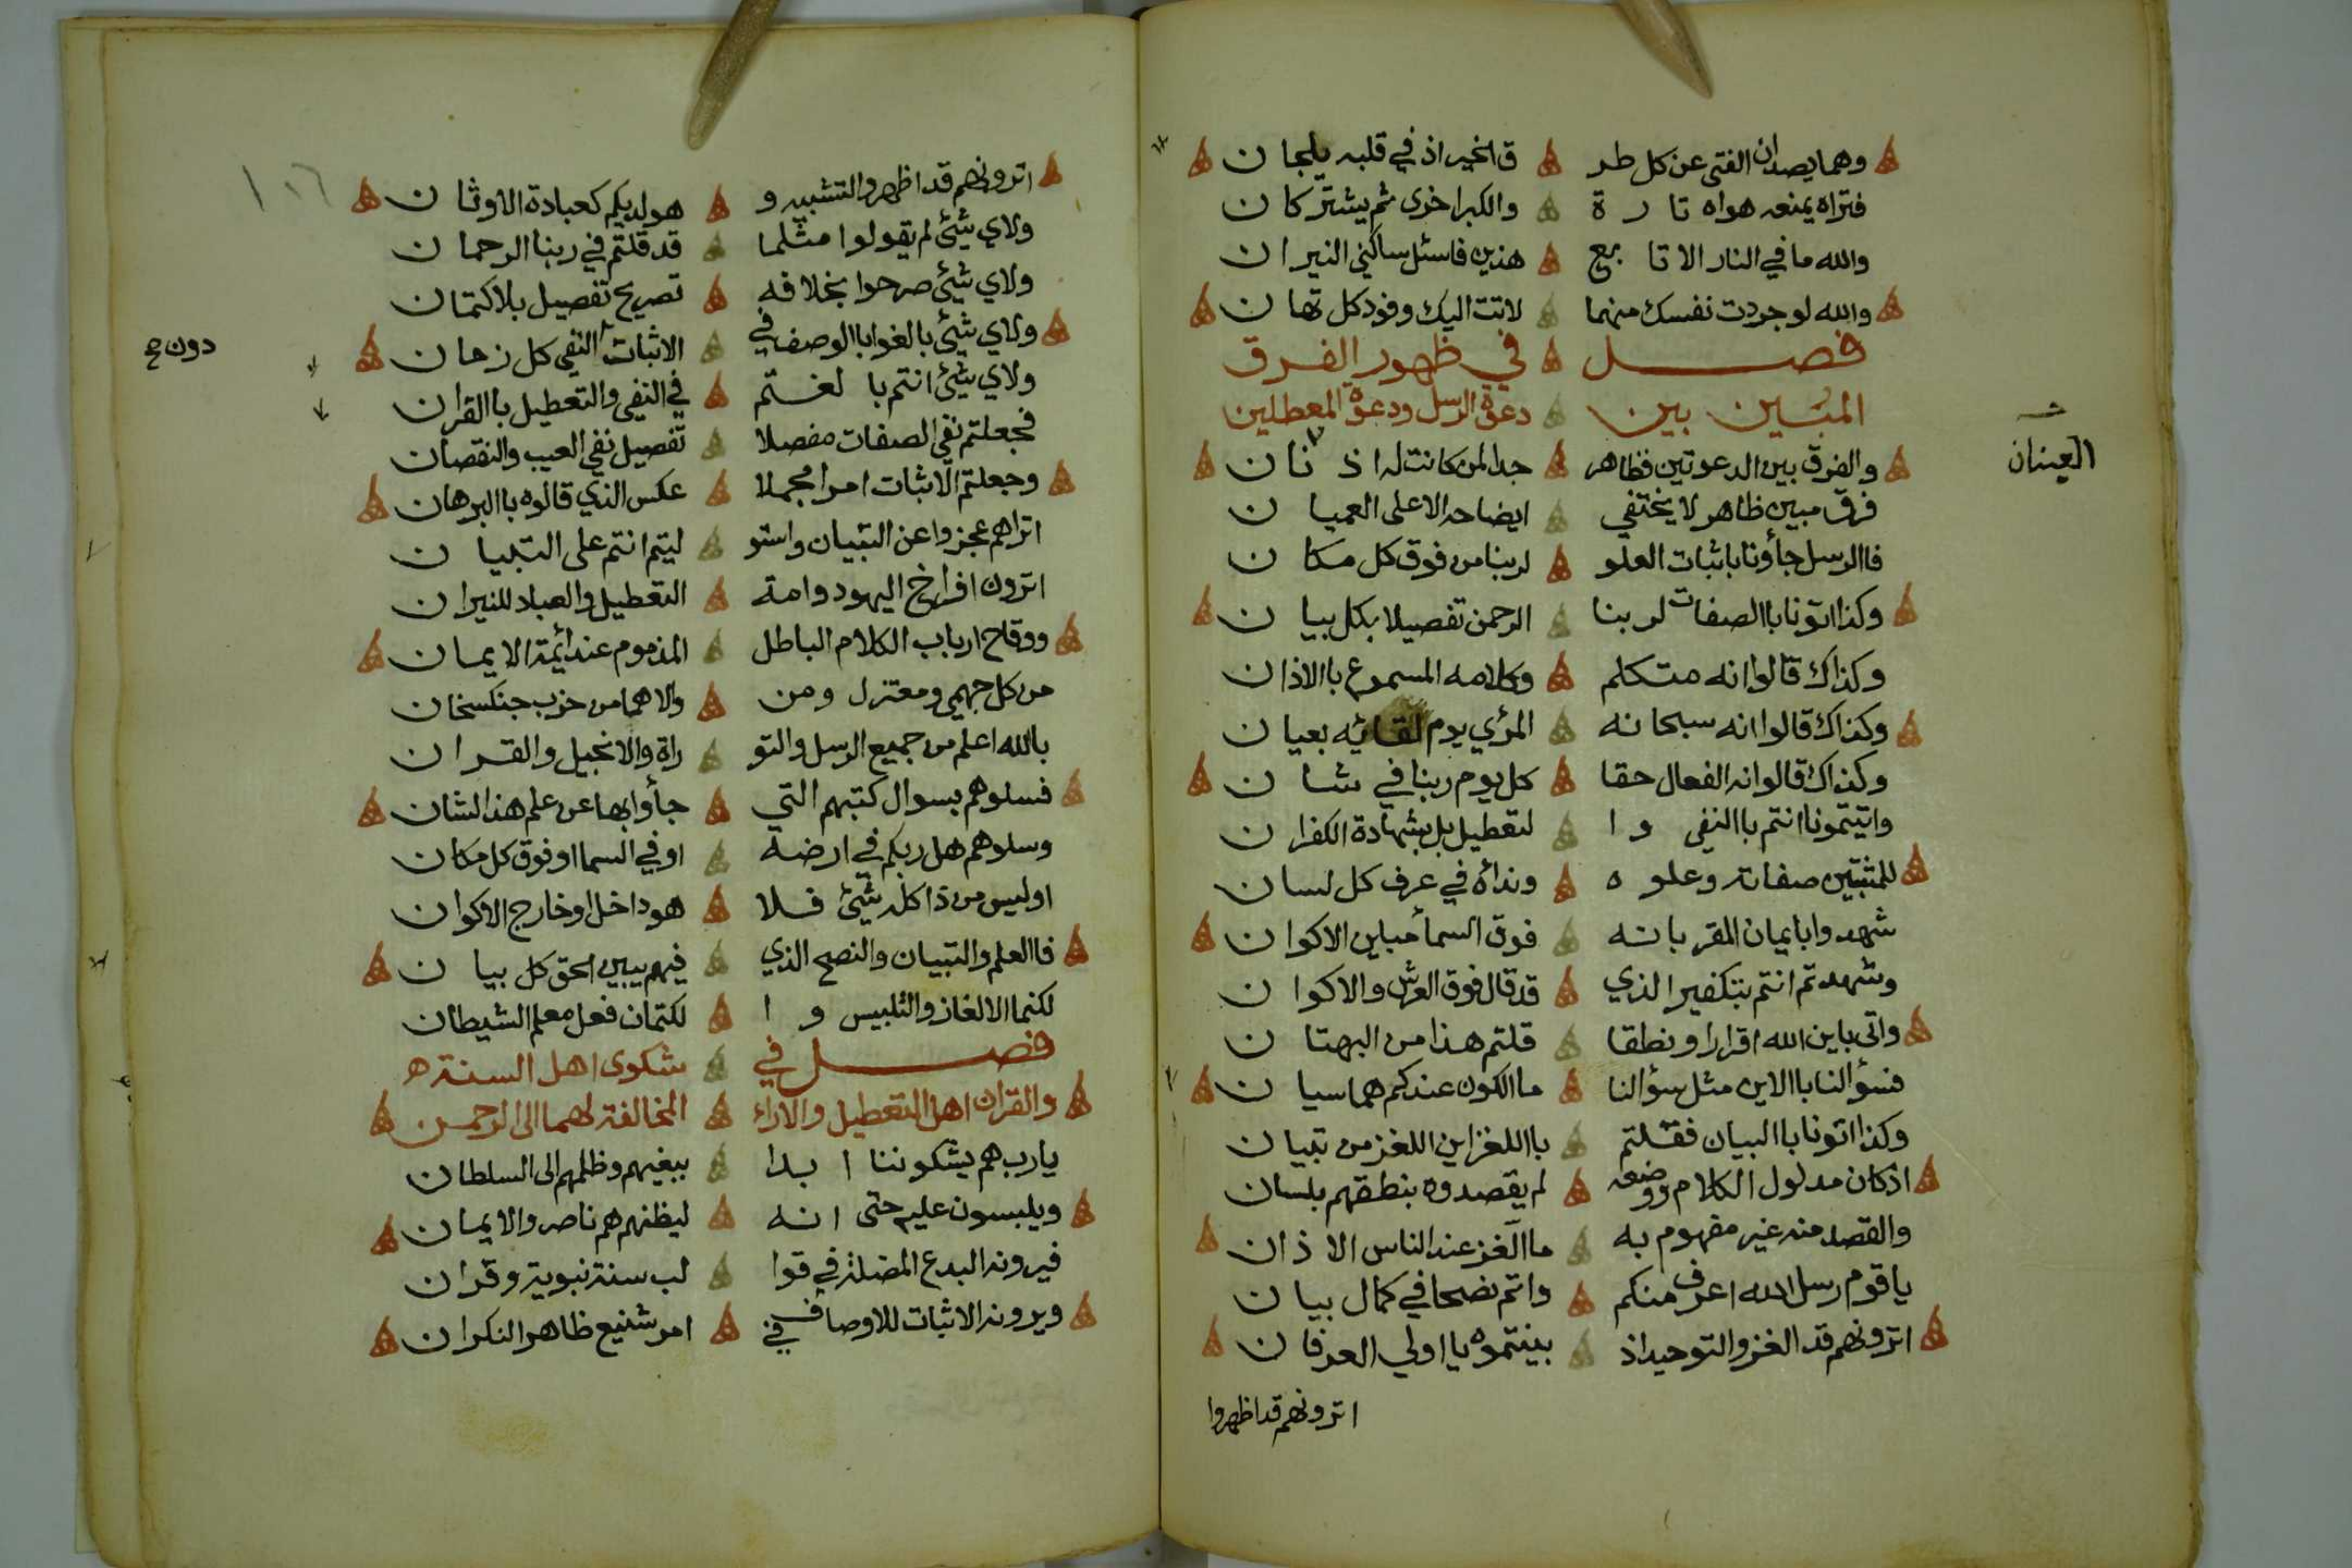 وهما يصدان الفتى عن كل طر ق الخير اذ في قلبه يلجان
فتراه يمنعه هواه تارة والكبر اخرى ثم يشتركان
والله ما في النار الا تابع هذين فاسئل ساكني النيران
والله لو جردت نفسك منهما لاتت اليك وفود كل تهان
فصل في ظهور الفرق
المبين بين دعوة الرسل ودعوة المعطلين
والفرق بين الدعوتين فظاهر جدا لمن كانت له اذنان
العينان
فرق مبين ظاهر لا يختفي ايضاحه الا على العميان
فاالرسل جأونا باثبات العلو لربنا من فوق كل مكان
وكذا اتونا باالصفات لربنا الرحمن تفصيلا بكل بيان
وكذاك قالوا انه متكلم وكلامه المسموع باالاذان
وكذاك قالوا انه سبحانه المرئي يوم لقائيه بعيان
وكذاك قالوا انه الفعال حقا كل يوم ربنا في شان
واتيتمونا انتم باالنفي وا لتعطيل بل بشهادة الكفران
للمثبتين صفاته وعلوه ونداه في عرف كل لسان
شهدوا بايمان المقر بانه فوق السمأ مباين الاكوان
وشهدتم انتم بتكفير الذي قد قال فوق العرش والاكوان
واتى باين الله اقرارا ونطقا قلتم هذا من البهتان
فسؤالنا باالاين مثل سؤالنا ماالكون عندكم هما سيان
وكذا اتونا باالبيان فقلتم باللغز اين اللغز من تبيان
اذ كان مدلول الكلام ووضعه لم يقصدوه بنطقهم بلسان
والقصد منه غير مفهوم به ماالغز عند الناس الا ذان
يا قوم رسل الله اعرف منكم واتم نضحا في كمال بيان
اترونهم قد الغزوا التوحيد اذ بينتموه يا اولي العرفان
اترونهم قد اظهروا
١٠٦
اترونهم قد اظهروا التشبيه و هو لديكم كعبادة الاوثان
ولاي شيئ لم يقولوا مثلما قد قلتم في ربنا الرحمان
ولاي شيئ صرحوا بخلافه تصريح تفصيل بلا كتمان
ولاي شيئ بالغوا باالوصف في الاثبات النفي كل زمان
دون صح
ولاي شيئ انتم بالغتم في النفي والتعطيل باالقران
فجعلتم نفي الصفات مفصلا تفصيل نفي العيب والنقصان
وجعلتم الاثبات امرا مجملا عكس الذي قالوه باالبرهان
اتراهم عجزوا عن التبيان واستو ليتم انتم على التبيان
اترون افراخ اليهود وامة التعطيل والعباد للنيران
ووقاح ارباب الكلام الباطل المذموم عند أئمة الايمان
من كل جهمي ومعتزل ومن والاهما من حزب جنكسخان
بالله اعلم من جميع الرسل والتو راة والانجيل والقران
فسلوهم بسوال كتبهم التي جأوا بها عن علم هذا الشان
وسلوهم هل ربكم في ارضه او في السما او فوق كل مكان
او ليس من ذا كله شيئ فلا هو داخل او خارج الاكوان
فاالعلم والتبيان والنصح الذي فيهم يبين الحق كل بيان
لكنما الالغاز والتلبيس وا لكتمان فعل معلم الشيطان
فصل في شكوى اهل السنة ه
والقران اهل التعطيل والاراء المخالفة لهما الى الرحمن
يارب هم يشكوننا ابدا ببغيهم وظلمهم الى السلطان
ويلبسون عليه حتى انه ليظنهم هم ناصروا الايمان
فيرونه البدع المضلة في قوا لب سنة نبوية وقران
ويرونه الاثبات للاوصاف في امر شنيع ظاهر النكران